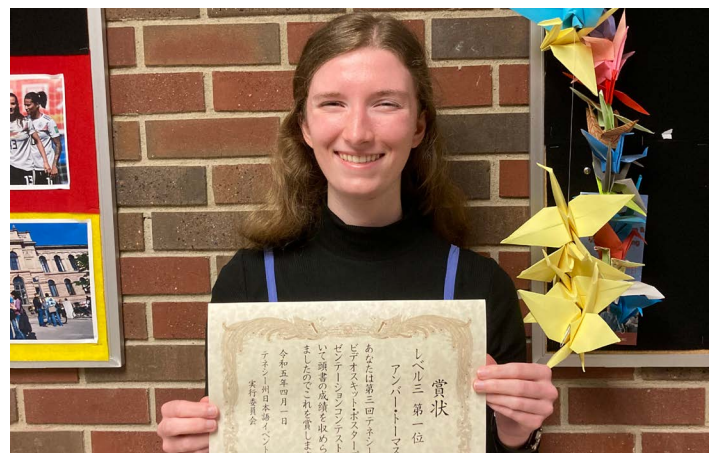 賞状
レベル三 第一位
アンバー・トーマス
あなたは第三回テネシー
ビデオスキット・ポスター
ゼンテーションコンテスト
いて頭書の成績を収めら
ましたのでこれを賞しま
令和五年四月一日
テネシー州日本語イベント
実行委員会
13